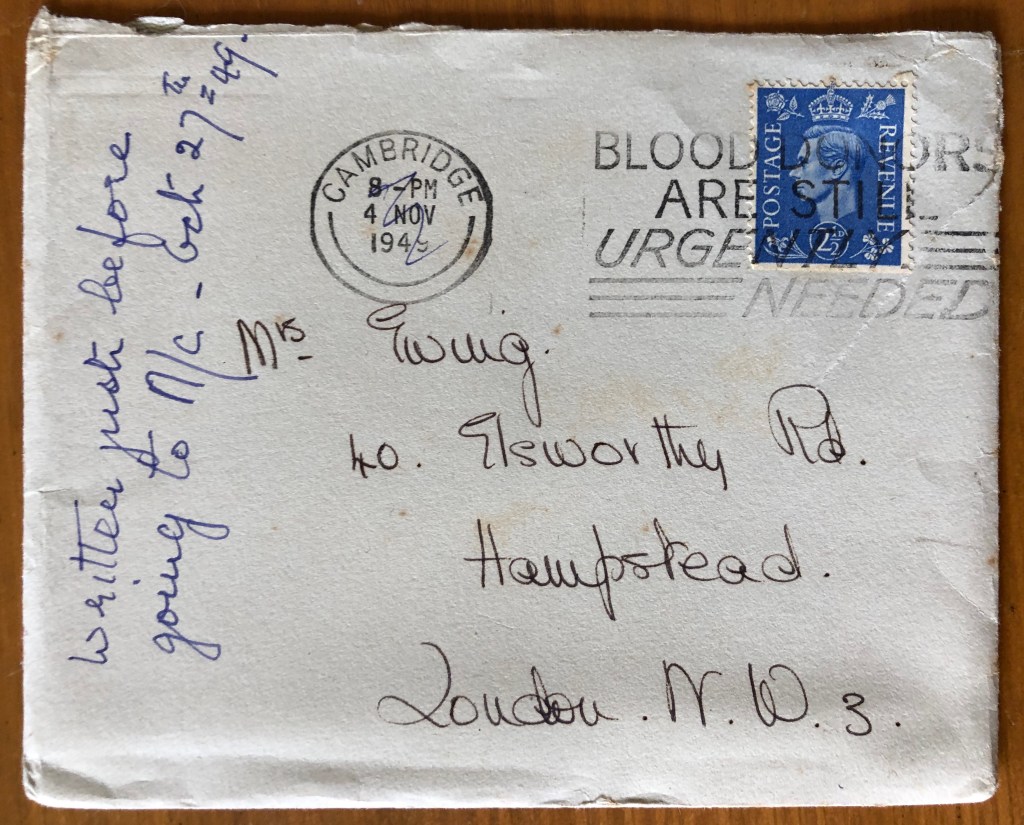 written just before
going to N/C - Oct 27th = 49.
CAMBRIDGE
8 - PM
4 NOV
1949
BLOOD DONORS
ARE STILL
URGENTLY
NEEDED
POSTAGE
REVENUE
2½D
Mrs Ewing.
40. Elsworthy Rd.
Hampstead.
London. N. W. 3.